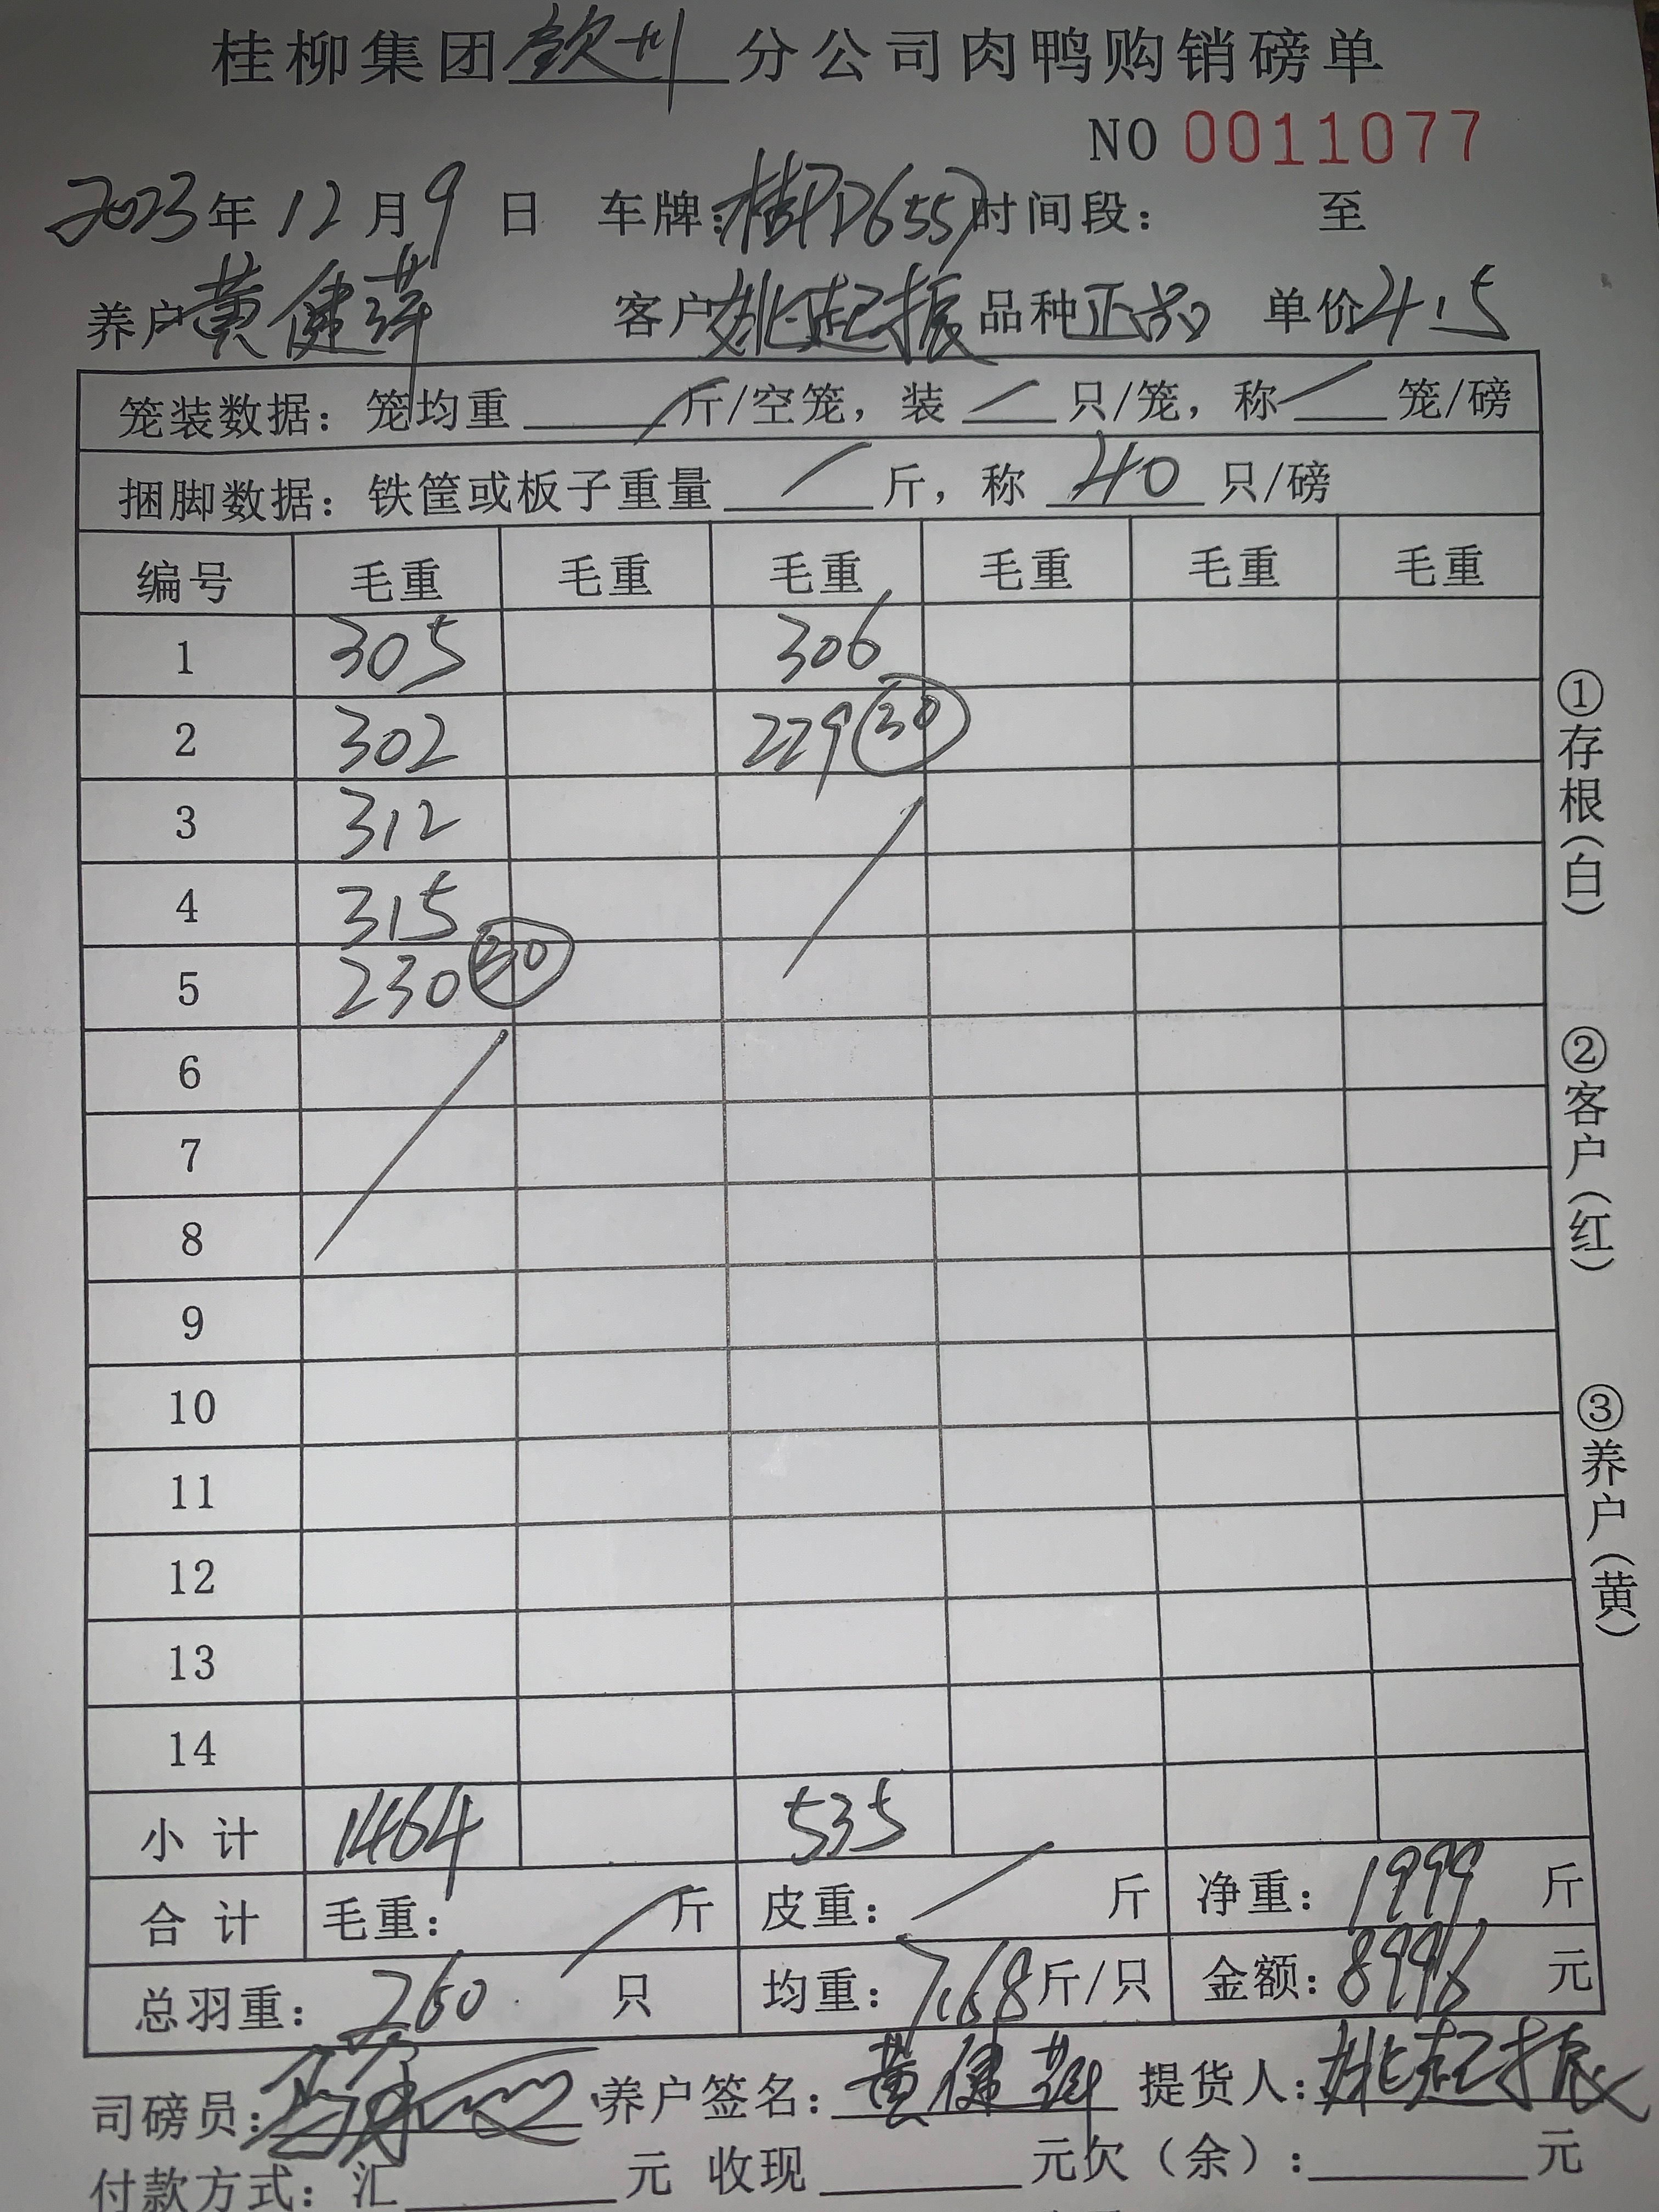 桂柳集团钦州分公司肉鸭购销磅单
NO 0011077
2023年12月9日 车牌:桂PD6557时间段: 至
养户黄健萍 客户姚起振 品种正品 单价4.5
笼装数据: 笼均重 / 斤/空笼, 装 / 只/笼, 称 / 笼/磅
捆脚数据: 铁筐或板子重量 / 斤, 称 40 只/磅
编号 毛重 毛重 毛重 毛重 毛重 毛重
1 305 306
2 302 229 30
3 312
4 315
5 230 30
6
7
8
9
10
11
12
13
14
小计 1464 535
合计 毛重: / 斤 皮重: / 斤 净重: 1999 斤
总羽重: 260 只 均重: 7.68斤/只 金额: 8996 元
司磅员: 养户签名: 黄健萍 提货人: 姚起振
付款方式: 汇 元 收现 元欠(余): 元
①存根(白)
②客户(红)
③养户(黄)